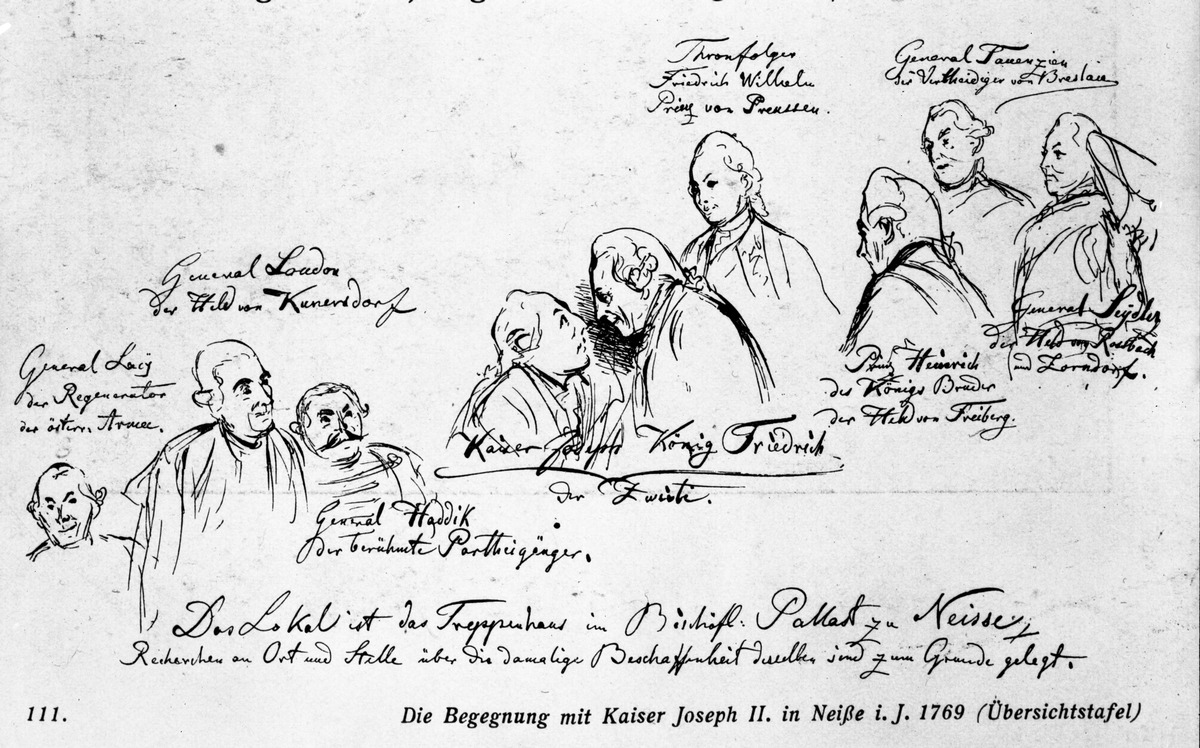 Thronfolger
Friedrich Wilhelm
Prinz von Preussen.
General Tauenzien
der Vertheidiger von Breslau
General Loudon
der Held von Kunersdorf
General Lacÿ
der Regenerator
der österr. Armee.
General Seÿdlez
der Held von Rossbach
und Zorndorf.
Prinz Heinrich
des Königs Bruder
der Held von Freiberg.
Kaiser Joseph König Friedrich
der Zweite.
General Haddik
der berühmte Partheigänger.
Das Lokal ist das Treppenhaus im Bischöfl: Pallast zu Neisse,
Recherchen an Ort und Stelle über die damalige Beschaffenheit desselben sind zum Grunde gelegt.
111. Die Begegnung mit Kaiser Joseph II. in Neiße i. J. 1769 (Übersichtstafel)